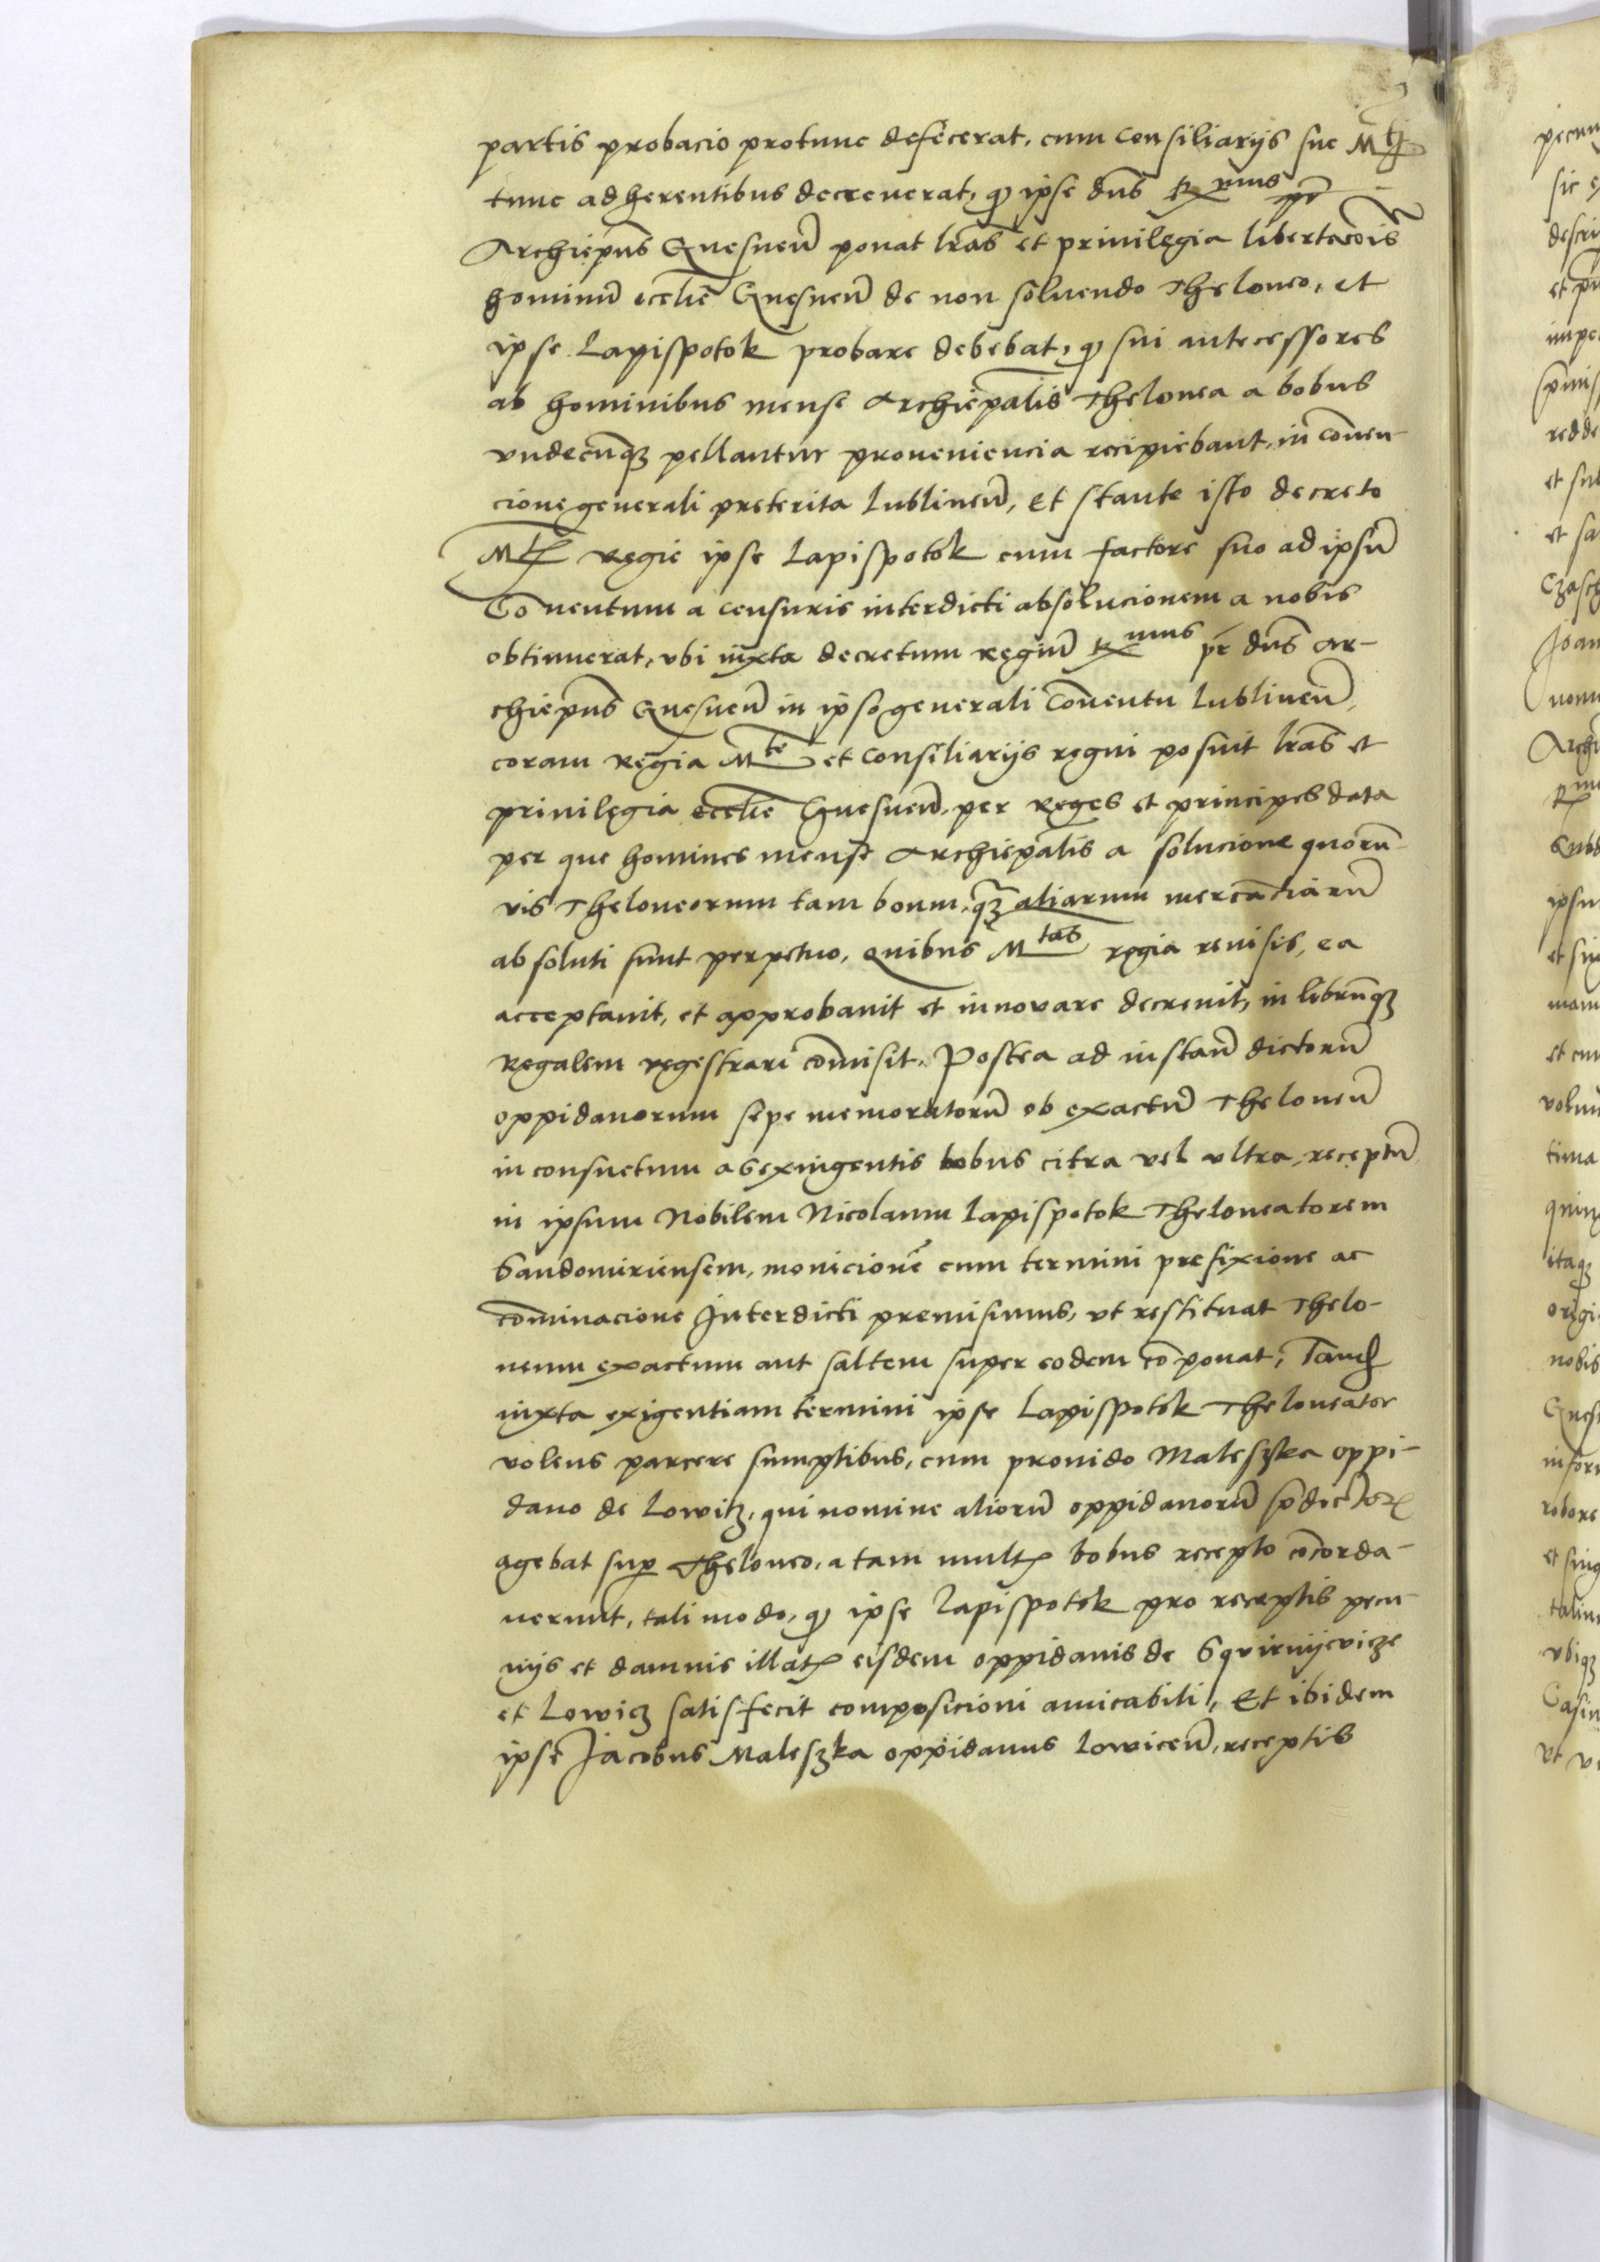 partis probacio protunc defecerat, cum consiliarijs sue M
tunc adherentibus decreverat, ꝙ ipse dn̄s Rmus pr̄
Archiepūs Gnesneñ ponat lr̄as et privilegia libertacōis
hominū eccl̄ie Gnesneñ de non solvendo Theloneo, et
ipse Lapispotok probare debebat, ꝙ sui antecessores
ab hominibus mense Archiepālis Thelonea a bobus
undecūqꝫ pellantur proveniencia recipiebant, in cōven
cione generali preterita Lublineñ, Et stante isto decreto
Mtis Regie ipse Lapispotok cum factore suo ad ipsū
Cōventum a censuris interdicti absolucionem a nobis
obtinuerat, ubi iuxta decretum Regiū Rmus pr̄ dn̄s Ar-
chiepūs Gnesneñ in ipso generali Cōventu Lublineñ,
coram Regia Mte et Consiliarijs regni posuit lr̄as et
privilegia eccl̄ie Gnesneñ, per Reges et principes data
per que homines mense Archiepālis a solucione quorū-
vis Theloneorum tam boum, qꝫ aliarum mercātiarū
absoluti sunt perpetuo, Quibus Mtas regia revisis, ea
acceptavit, et approbavit et innovare decrevit, in librūqꝫ
Regalem regestrari cōmisit, Postea ad instañ dictorū
oppidanorum sepe memoratorū ob exactū Theloneū
inconsuetum a sexingentis bobus citra vel ultra, receptū
in ipsum Nobilem Nicolaum Lapispotok Theloneatorem
Sandomiriensem, monicionē cum termini prefixione ac
cōminacione Interdicti premisimus, ut restituat Thelo-
neum exactum aut saltem super eodem cōponat, Tandē
iuxta exigentiam termini ipse Lapispotok Theloneator
volens parcere sumptibus, cum provido Maleszka oppi-
dano de Lowicz, qui nomine aliorū oppidanorū p̄dictorꝝ
agebat sup̄ Theloneo, a tam multꝭ bobus recepto cōcorda-
verunt, tali modo, ꝙ ipse Lapispotok pro receptis pecu
nijs et damnis illatꝭ eisdem oppidanis de Sqvirnijevicze
et Lowicz satisfecit composicioni amicabili, Et ibidem
ipse Jacobus Maleszka oppidanus Lowiceñ, receptis